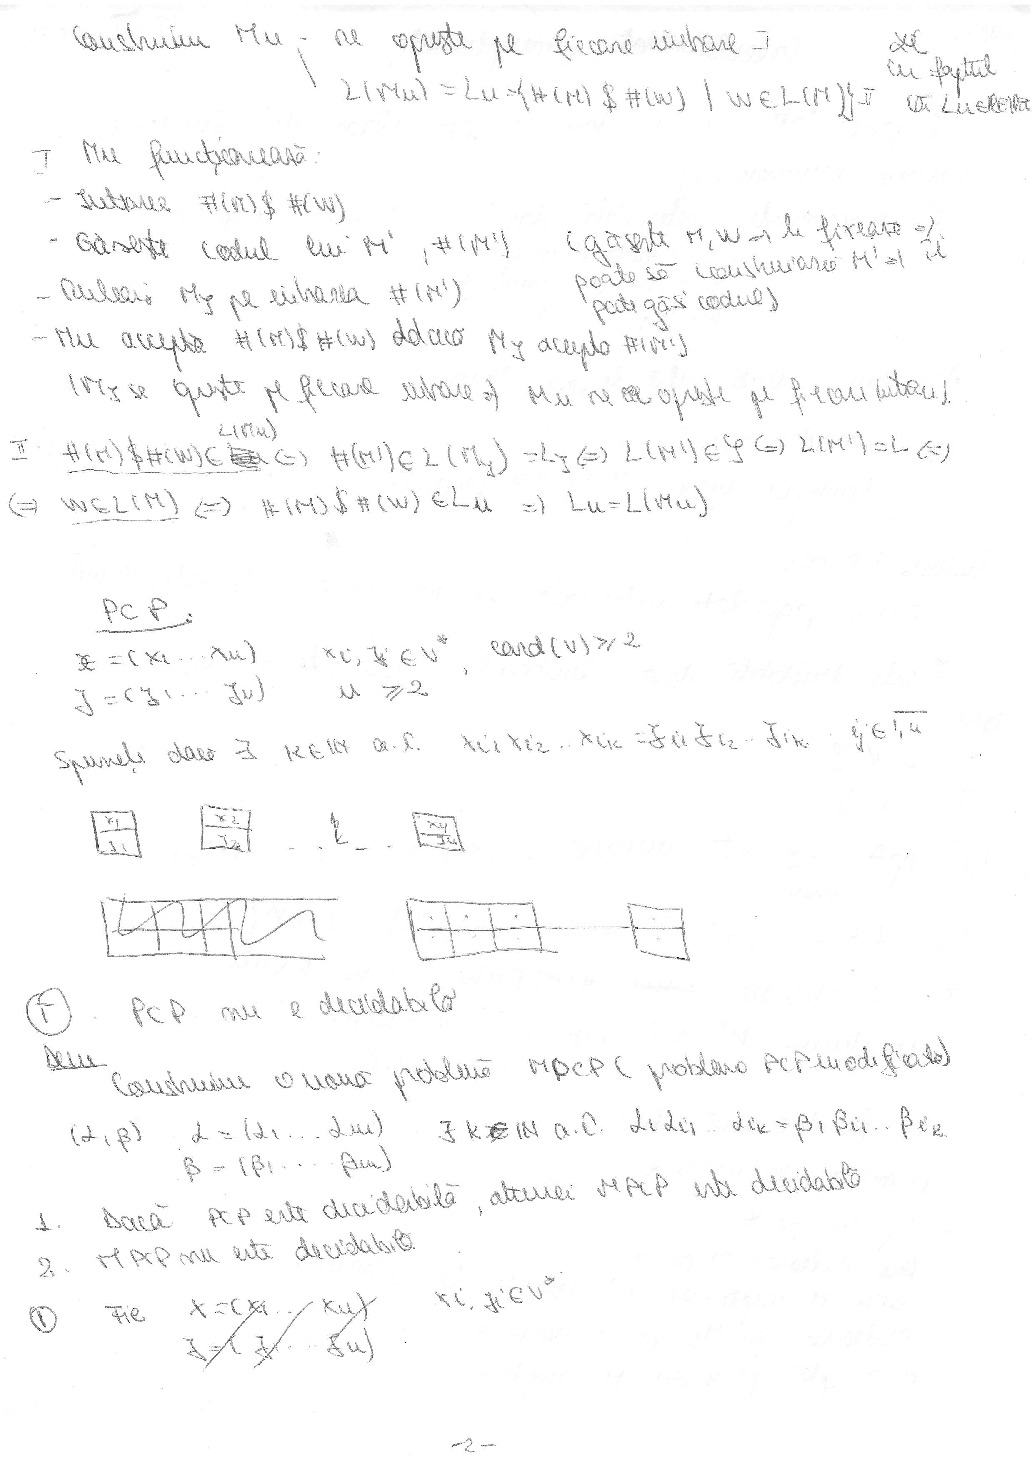 Construim Mu - se oprește pe fiecare intrare - I
L(Mu) = Lu = {#(M) $ #(w) | w ∈ L(M)} II
cu faptul
că Lu ∈ RE\REC
I Mu funcționează:
- Intrarea #(M) $ #(w)
- Găsește codul lui M', #(M') (găsește M, w → le fixează ⇒
poate să construiască M' ⇒ îi
poate găsi codul)
- Rulează My pe intrarea #(M')
- Mu acceptă #(M) $ #(w) ddacă My acceptă #(M')
(My se oprește pe fiecare intrare ⇒ Mu se oprește pe fiecare intrare).
L(Mu)
II #(M) $ #(w) ∈ ⇔ #(M') ∈ L(My) = Ly ⇔ L(M') ∈ Y ⇔ L(M') = L ⇔
⇔ w ∈ L(M) ⇔ #(M) $ #(w) ∈ Lu ⇒ Lu = L(Mu)
PCP.
x = (x1 ... xn) xi, yi ∈ V*, card(V) ≥ 2
y = (y1 ... yn) n ≥ 2
Spuneți dacă ∃ k ∈ IN a.î. xi1 xi2 .. xik = yi1 yi2 .. yik ij ∈ 1,n
x1 x2 ... xn
y1 y2 yn
T. PCP nu e decidabilă
Dem
Construim o nouă problemă MPCP (problema PCP modificată)
(α, β) α = (α1 ... αm) ∃ k ∈ IN a.î. α1 αi1 .. αik = β1 βi1 .. βik
β = (β1 ... βm)
1. Dacă PCP este decidabilă, atunci MPCP este decidabilă
2. MPCP nu este decidabilă.
① Fie x = (x1 ... xn) xi, yi ∈ V*
y = (y1 ... yn)
-2-